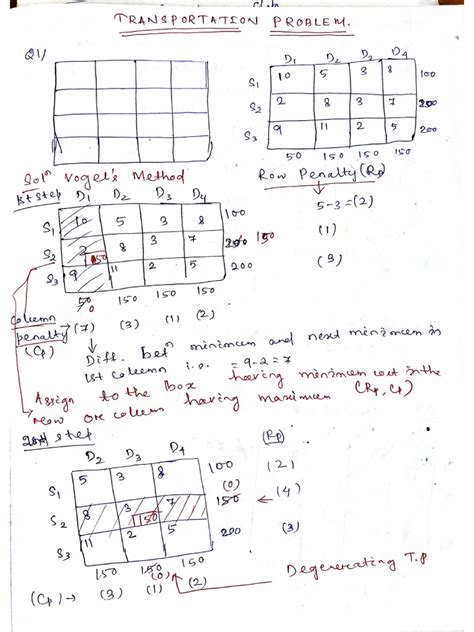 TRANSPORTATION PROBLEM.
Q1/
D1 D2 D3 D4
S1 10 5 3 8 100
S2 2 8 3 7 200
S3 9 11 2 5 200
50 150 150 150
Soln Vogel's Method
Row Penalty (Rp)
1st step D1 D2 D3 D4
5-3=(2)
S1 10 5 3 8 100
(1)
S2 2 50 8 3 7 200 150
(3)
S3 9 11 2 5 200
50 150 150 150
0
Column penalty → (7) (3) (1) (2)
(Cp)
Diff. betn minimum and next minimum in
1st column i.e. = 9-2 = 7
Assign to the box having minimum cost in the
row or column having maximum (Rp, Cp)
2nd step
D2 D3 D4 (Rp)
S1 5 3 8 100 (2)
(0)
S2 8 3 150 7 150 ← (4)
S3 11 2 5 200 (3)
150 150 150
(0)
(Cp) → (3) (1) (2)
Degenerating T.P